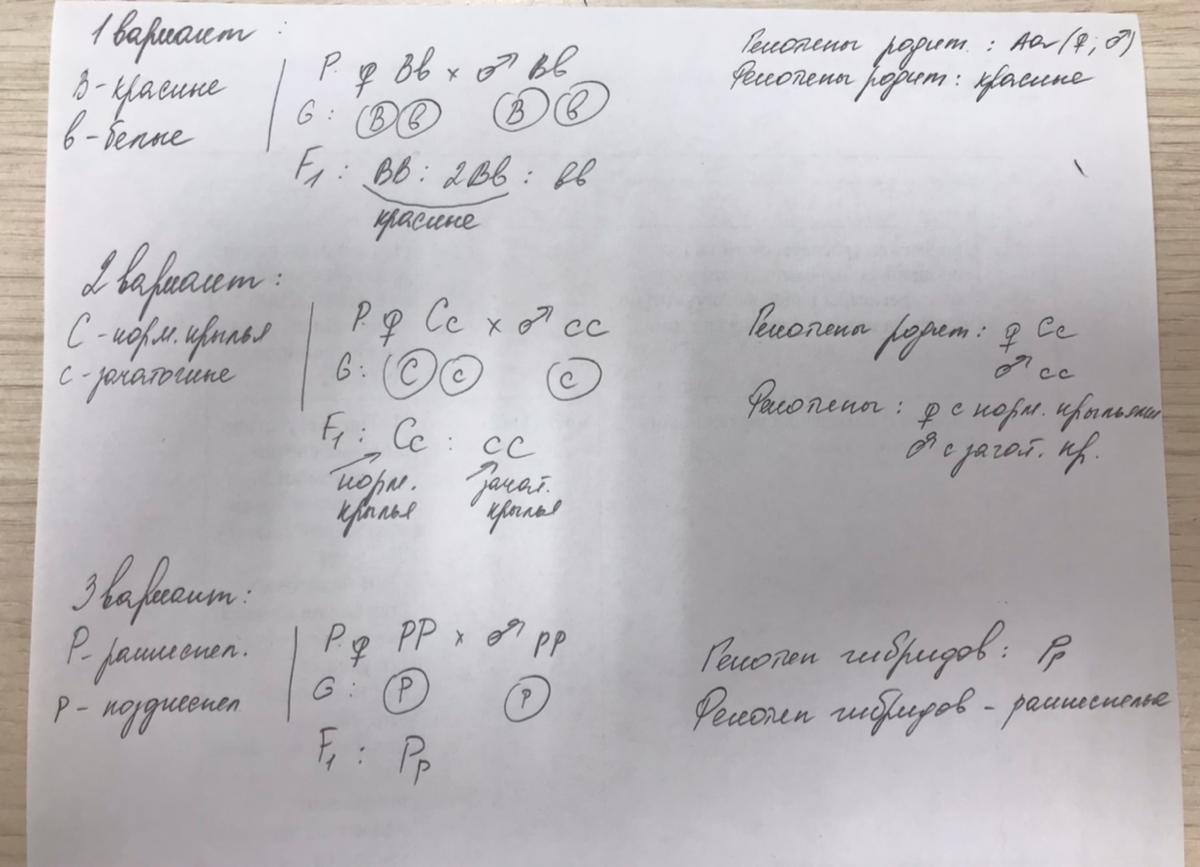 1 вариант:
В - красные
в - белые
Р. ♀ Вв × ♂ Вв
G: В в В в
F₁: ВВ : 2Вв : вв
красные
Генотипы родит.: Аа (♀; ♂)
Фенотипы родит: красные
2 вариант:
С - норм. крылья
с - зачаточные
Р. ♀ Сс × ♂ сс
G: С с с
F₁: Сс : сс
норм. зачат.
крылья крылья
Генотипы родит: ♀ Сс
♂ сс
Фенотипы: ♀ с норм. крыльями
♂ с зачат. кр.
3 вариант:
Р - раннеспел.
р - позднеспел
Р. ♀ РР × ♂ рр
G: Р р
F₁: Рр
Генотип гибридов: Рр
Фенотип гибридов - раннеспелые